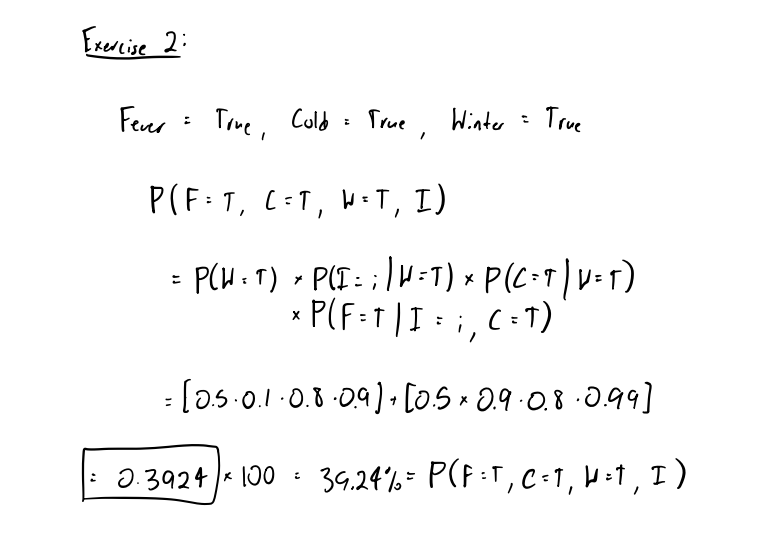 Exercise 2:
Fever = True, Cold = True, Winter = True
P(F=T, C=T, W=T, I)
= P(W=T) × P(I=i|W=T) × P(C=T|W=T)
× P(F=T|I=i, C=T)
= [0.5·0.1·0.8·0.9] + [0.5×0.9·0.8·0.99]
= 0.3924 × 100 = 39.24% = P(F=T, C=T, W=T, I)